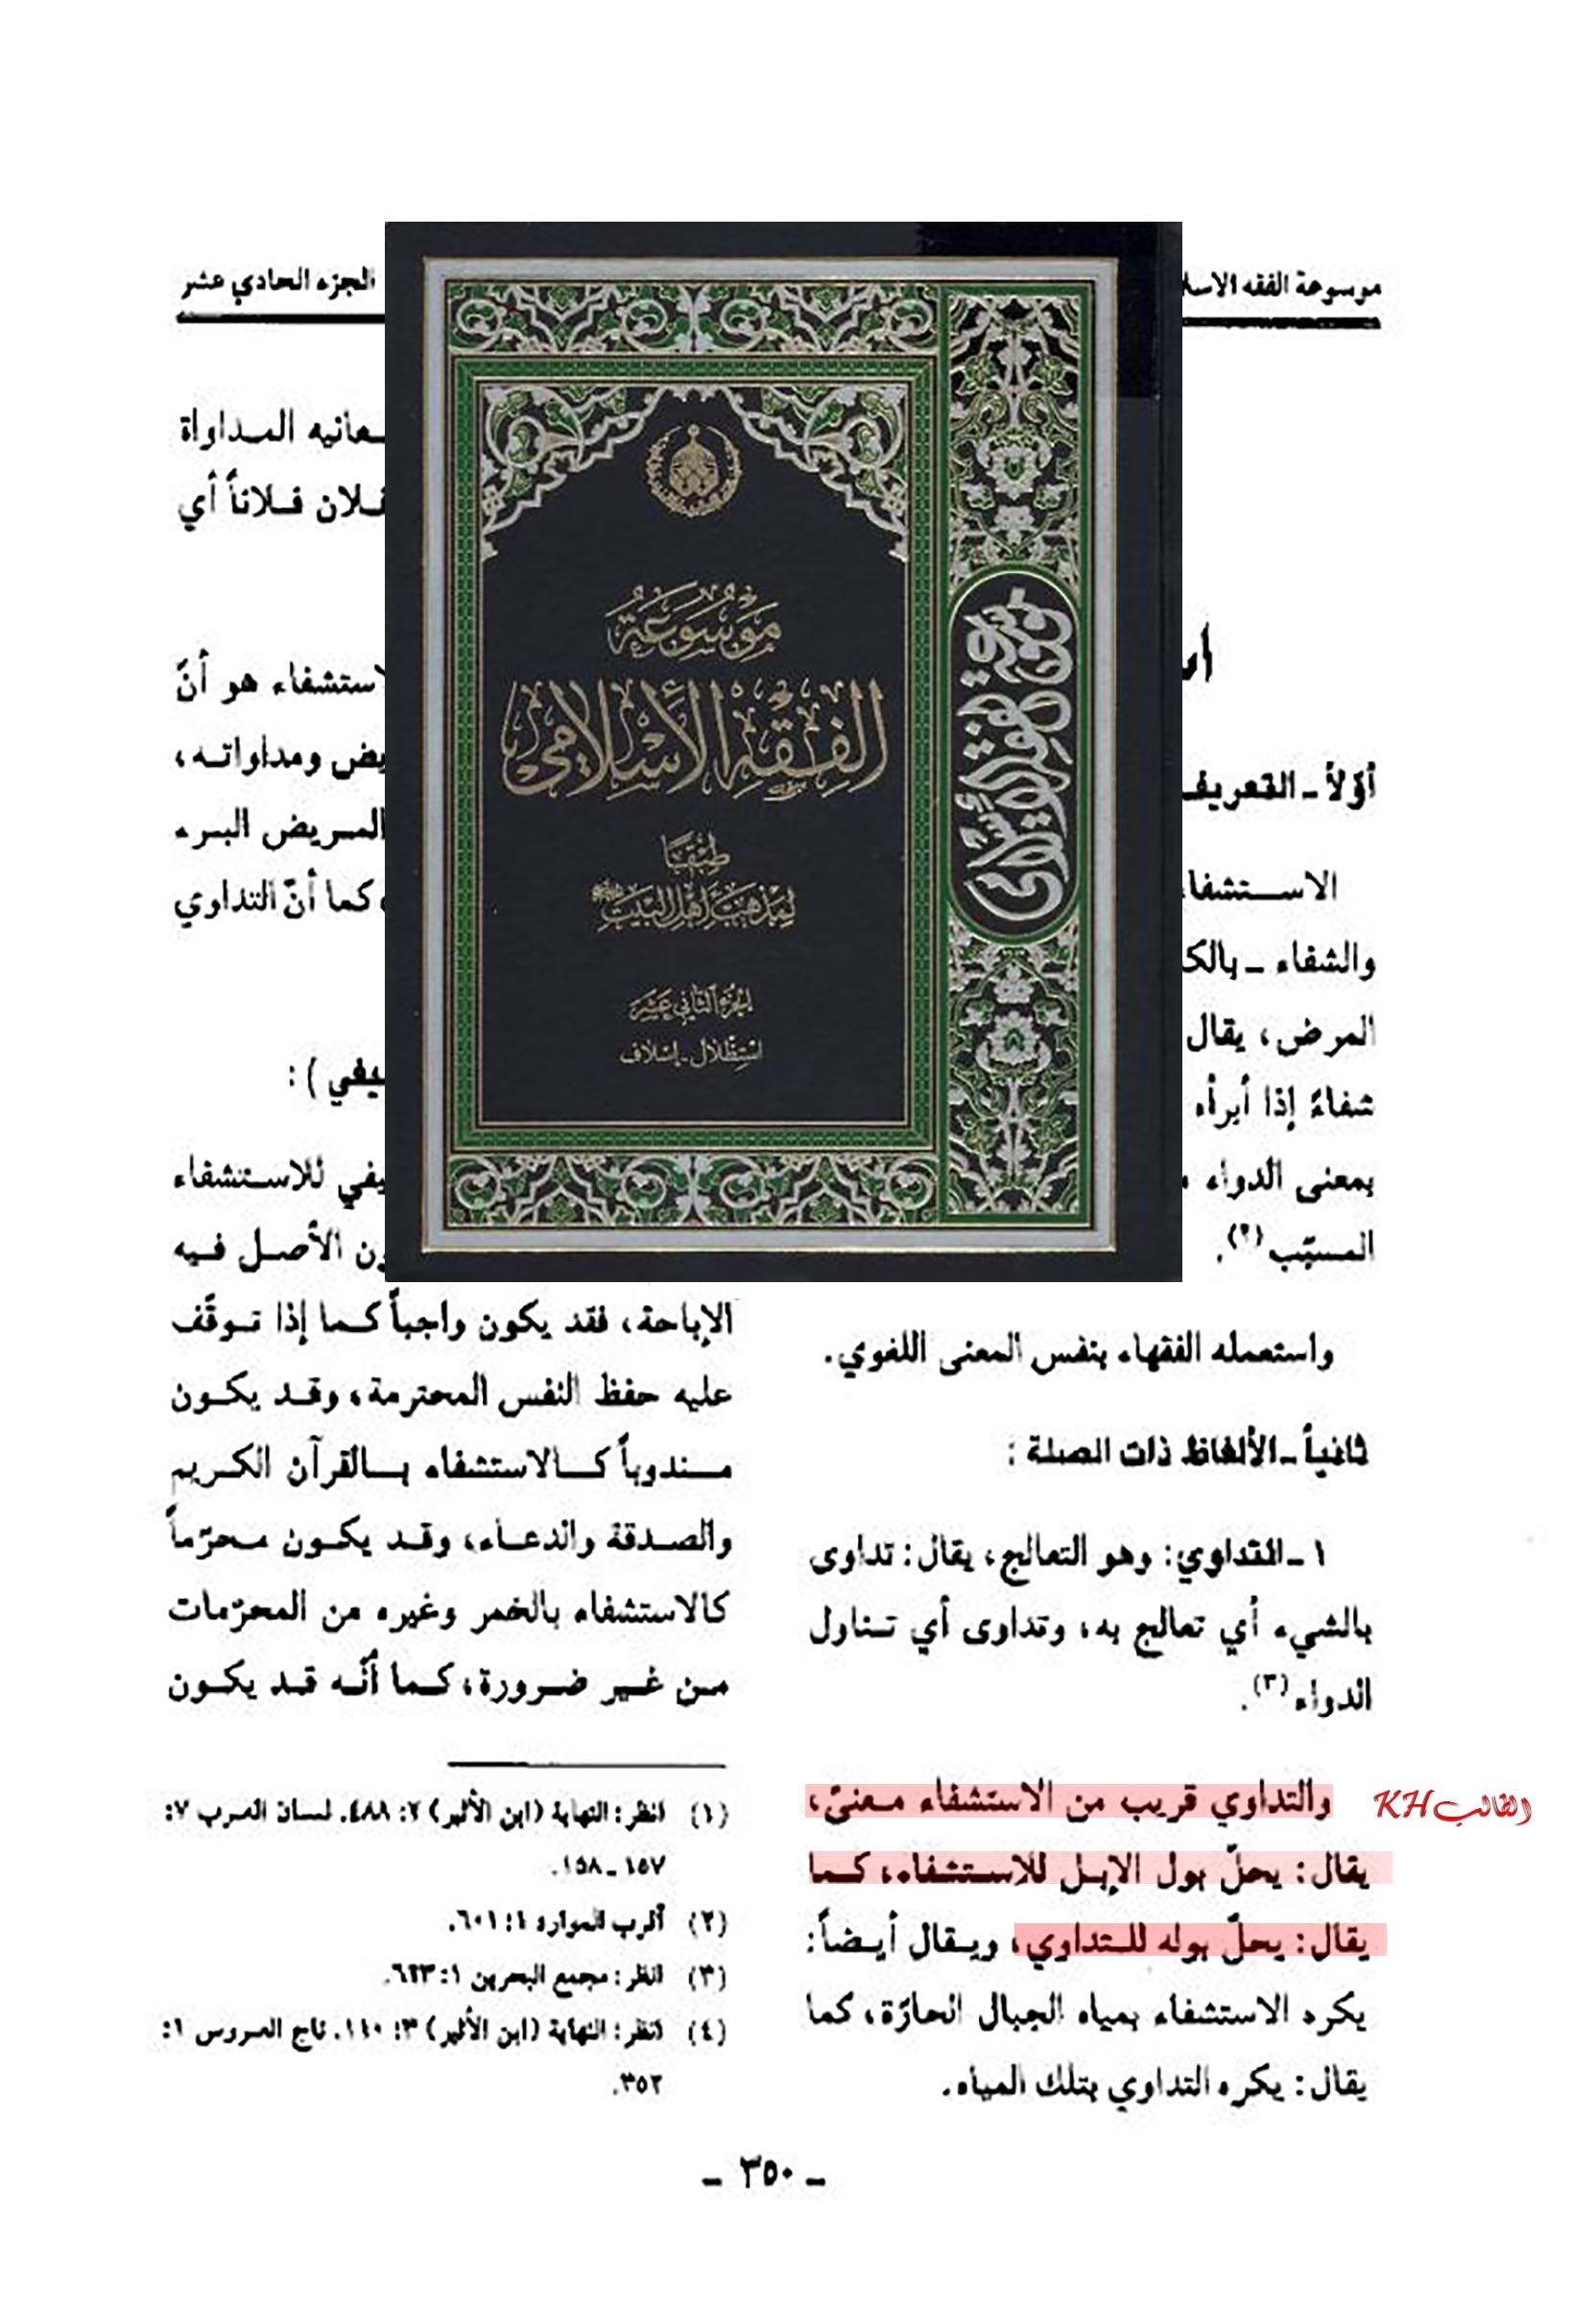 موسوعة الفقه الاسلا
الجزء الحادي عشر
أوّلاً ـ التعريف
الاستشفاء
والشفاء ـ بالك
المرض، يقال
شفاءً إذا أبرأه
بمعنى الدواء
المسبّب(٢).
واستعمله الفقهاء بنفس المعنى اللغوي.
ثانياً ـ الألفاظ ذات الصلة:
١ ـ التداوي: وهو التعالج، يقال: تداوى
بالشيء أي تعالج به، وتداوى أي تناول
الدواء(٣).
والتداوي قريب من الاستشفاء معنىً،
يقال: يحلّ بول الإبل للاستشفاء، كما
يقال: يحلّ بوله للتداوي، ويقال أيضاً:
يكره الاستشفاء بمياه الجبال الحارّة، كما
يقال: يكره التداوي بتلك المياه.
ـعانيه المداواة
فلان فلاناً أي
استشفاء هو أنّ
يض ومداواته،
المريض البرء
كما أنّ التداوي
يفي):
يفي للاستشفاء
ون الأصل فيه
الإباحة، فقد يكون واجباً كما إذا توقّف
عليه حفظ النفس المحترمة، وقد يكون
مندوباً كالاستشفاء بالقرآن الكريم
والصدقة والدعاء، وقد يكون محرّماً
كالاستشفاء بالخمر وغيره من المحرّمات
من غير ضرورة، كما أنّه قد يكون
(١) انظر: النهاية (ابن الأثير) ٢: ٤٨٨. لسان العرب ٧:
١٥٧ ـ ١٥٨.
(٢) أقرب الموارد ١: ٦٠١.
(٣) انظر: مجمع البحرين ١: ٦٢٣.
(٤) انظر: النهاية (ابن الأثير) ٣: ١١٠. تاج العروس ١:
٣٥٢.
ـ ٣٥٠ ـ
موسوعة
الفقه الإسلامي
طبقا
لمذهب أهل البيت
الجزء الثاني عشر
استظلال ـ إسلاف
موسوعة الفقه الإسلامي
الطالب KH